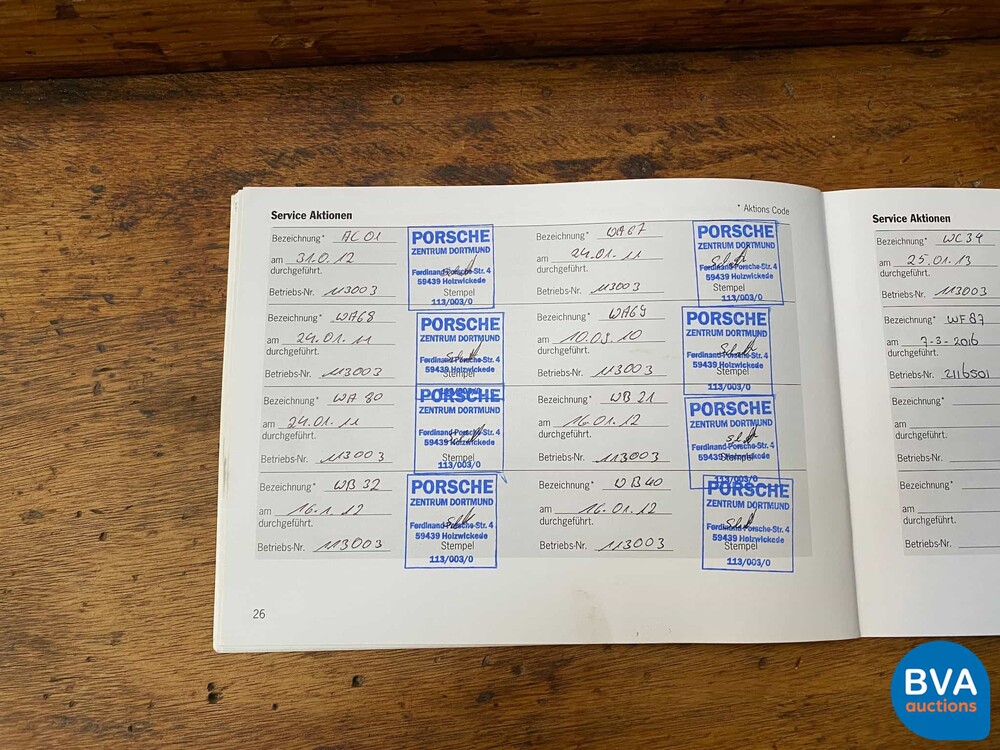 Service Aktionen
* Aktions Code
Bezeichnung* AC01
PORSCHE
ZENTRUM DORTMUND
am 31.0.12
durchgeführt.
Ferdinand-Porsche-Str. 4
59439 Holzwickede
Betriebs-Nr. 113003
Stempel
113/003/0
Bezeichnung* WA67
PORSCHE
ZENTRUM DORTMUND
am 24.01.11
durchgeführt.
Ferdinand-Porsche-Str. 4
59439 Holzwickede
Betriebs-Nr. 113003
Stempel
113/003/0
Bezeichnung* WA68
PORSCHE
ZENTRUM DORTMUND
am 24.01.11
durchgeführt.
Ferdinand-Porsche-Str. 4
59439 Holzwickede
Betriebs-Nr. 113003
Stempel
113/003/0
Bezeichnung* WA69
PORSCHE
ZENTRUM DORTMUND
am 10.09.10
durchgeführt.
Ferdinand-Porsche-Str. 4
59439 Holzwickede
Betriebs-Nr. 113003
Stempel
113/003/0
Bezeichnung* WA 80
PORSCHE
ZENTRUM DORTMUND
am 24.01.11
durchgeführt.
Ferdinand-Porsche-Str. 4
59439 Holzwickede
Betriebs-Nr. 113003
Stempel
113/003/0
Bezeichnung* WB 21
PORSCHE
ZENTRUM DORTMUND
am 16.01.12
durchgeführt.
Ferdinand-Porsche-Str. 4
59439 Holzwickede
Betriebs-Nr. 113003
Stempel
113/003/0
Bezeichnung* WB 32
PORSCHE
ZENTRUM DORTMUND
am 16.1.12
durchgeführt.
Ferdinand-Porsche-Str. 4
59439 Holzwickede
Betriebs-Nr. 113003
Stempel
113/003/0
Bezeichnung* WB40
PORSCHE
ZENTRUM DORTMUND
am 16.01.12
durchgeführt.
Ferdinand-Porsche-Str. 4
59439 Holzwickede
Betriebs-Nr. 113003
Stempel
113/003/0
26
Service Aktionen
Bezeichnung* WC34
am 25.01.13
durchgeführt.
Betriebs-Nr. 113003
Bezeichnung* WF87
am 7-3-2016
durchgeführt.
Betriebs-Nr. 2116501
Bezeichnung*
am
durchgeführt.
Betriebs-Nr.
Bezeichnung*
am
durchgeführt.
Betriebs-Nr.
BVA
auctions